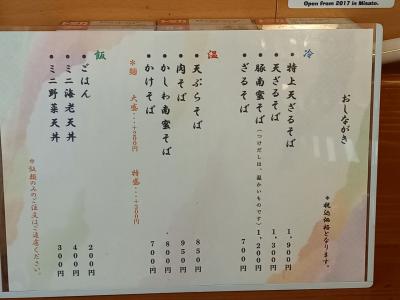 Open from 2017 in Misato.
おしながき
*税込価格となります。
冷
・特上天ざるそば 1,900円
・天ざるそば 1,300円
・豚南蛮そば(つけだしは、温かいものです) 1,200円
・ざるそば 700円
温
・天ぷらそば 850円
・肉そば 950円
・かしわ南蛮そば 800円
・かけそば 700円
*麺 大盛・・・+200円 特盛・・・+300円
飯
・ごはん 200円
・ミニ海老天丼 400円
・ミニ野菜天丼 300円
*飯類のみのご注文はご遠慮ください。